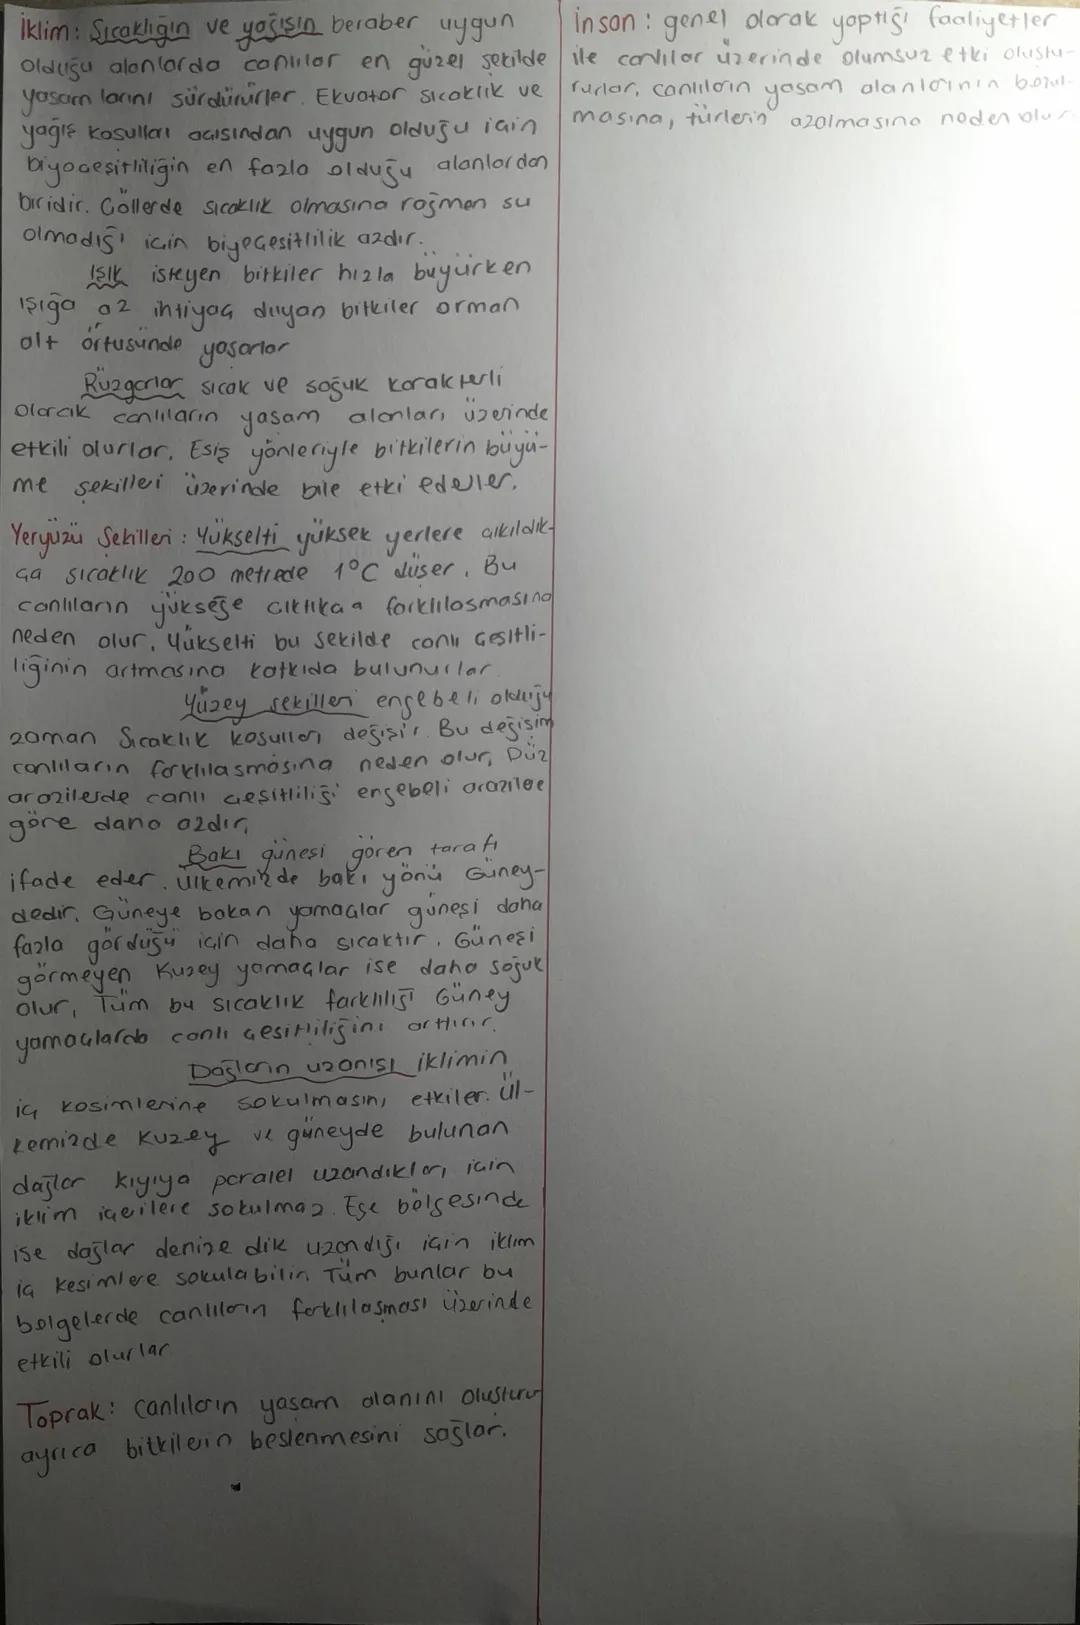 İklim: Sıcaklığın ve yağışın beraber uygun
olduğu alanlarda canlılar en güzel şekilde
yaşamlarını sürdürürler. Ekvator sıcaklık ve
yağış koşulları açısından uygun olduğu için
biyoçeşitliliğin en fazla olduğu alanlardan
biridir. Çöllerde sıcaklık olmasına rağmen su
olmadığı için biyeçeşitlilik azdır.
Işık isteyen bitkiler hızla büyürken
ışığa az ihtiyaç duyan bitkiler orman
alt örtüsünde yaşarlar
Rüzgarlar sıcak ve soğuk karakterli
olarak canlıların yaşam alanları üzerinde
etkili olurlar. Esiş yönleriyle bitkilerin büyü-
me şekilleri üzerinde bile etki ederler.
Yeryüzü Şekilleri: Yükselti yüksek yerlere çıkıldık-
ça sıcaklık 200 metrede 1°C düşer. Bu
canlıların yükseğe çıktıkça farklılaşmasına
neden olur. Yükselti bu şekilde canlı çeşitli-
liğinin artmasına katkıda bulunurlar.
Yüzey şekilleri engebeli olduğu
zaman Sıcaklık koşulları değişir. Bu değişim
canlıların farklılaşmasına neden olur. Düz
arazilerde canlı çeşitliliği engebeli araziler
göre daha azdır.
Bakı güneşi gören tarafı
ifade eder. Ülkemizde bakı yönü Güney-
dedir. Güneye bakan yamaçlar güneşi daha
fazla gördüğü için daha sıcaktır. Güneşi
görmeyen Kuzey yamaçlar ise daha soğuk
olur. Tüm bu sıcaklık farklılığı Güney
yamaçlarda canlı çeşitliliğini arttırır.
Dağların uzanışı iklimin
iç kosimlerine sokulmasını etkiler. Ül-
kemizde Kuzey ve güneyde bulunan
dağlar kıyıya paralel uzandıkları için
iklim içerilere sokulmaz. Ege bölgesinde
ise dağlar denize dik uzandığı için iklim
iç kesimlere sokulabilir. Tüm bunlar bu
bölgelerde canlıların farklılaşması üzerinde
etkili olurlar
Toprak: Canlıların yaşam alanını oluşturur
ayrıca bitkilerin beslenmesini sağlar.
İnsan: genel olarak yaptığı faaliyetler
ile canlılar üzerinde olumsuz etki oluştu-
rurlar, canlıların yaşam alanlarının bozul-
masına, türlerin azalmasına neden olur